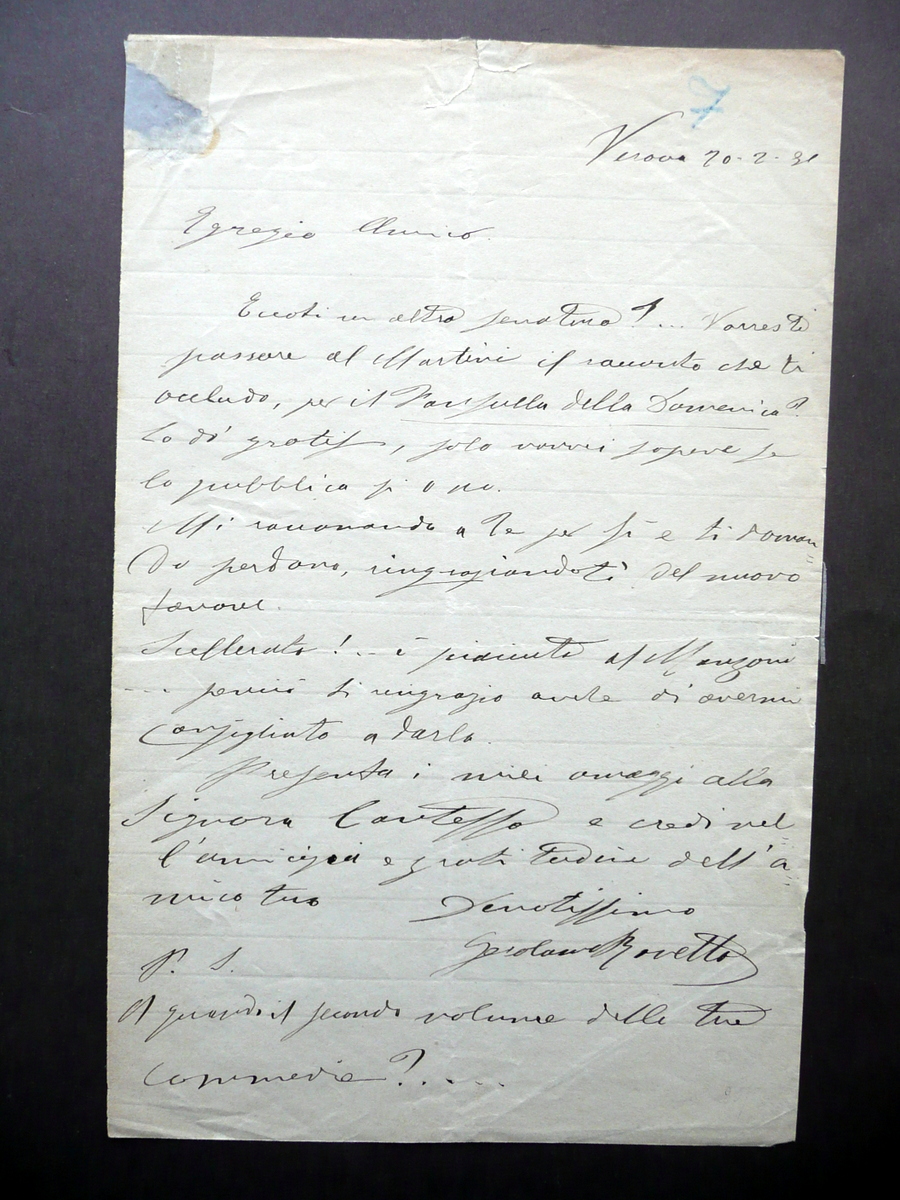 Verona 20-2-81
Egregio Amico.
Eccoti un altro ?... Vorresti
passare al Martini il racconto che ti
accludo, per il Fanfulla della Domenica?
Lo dò gratis, solo vorrei sapere se
lo pubblica si o no.
Mi raccomando a te per ciò e ti doman-
do perdono, ringraziandoti del nuovo
favore.
Scellerato!... è piaciuto al Manzoni
.... perciò ti ringrazio anche di avermi
consigliato a darla.
Presenta i miei omaggi alla
Signora Contessa e credi nel-
l'amicizia e gratitudine dell'a-
mico tuo
Devotissimo
Gerolamo Rovetta
P. S.
A quando il secondo volume delle tue
commedie?.....